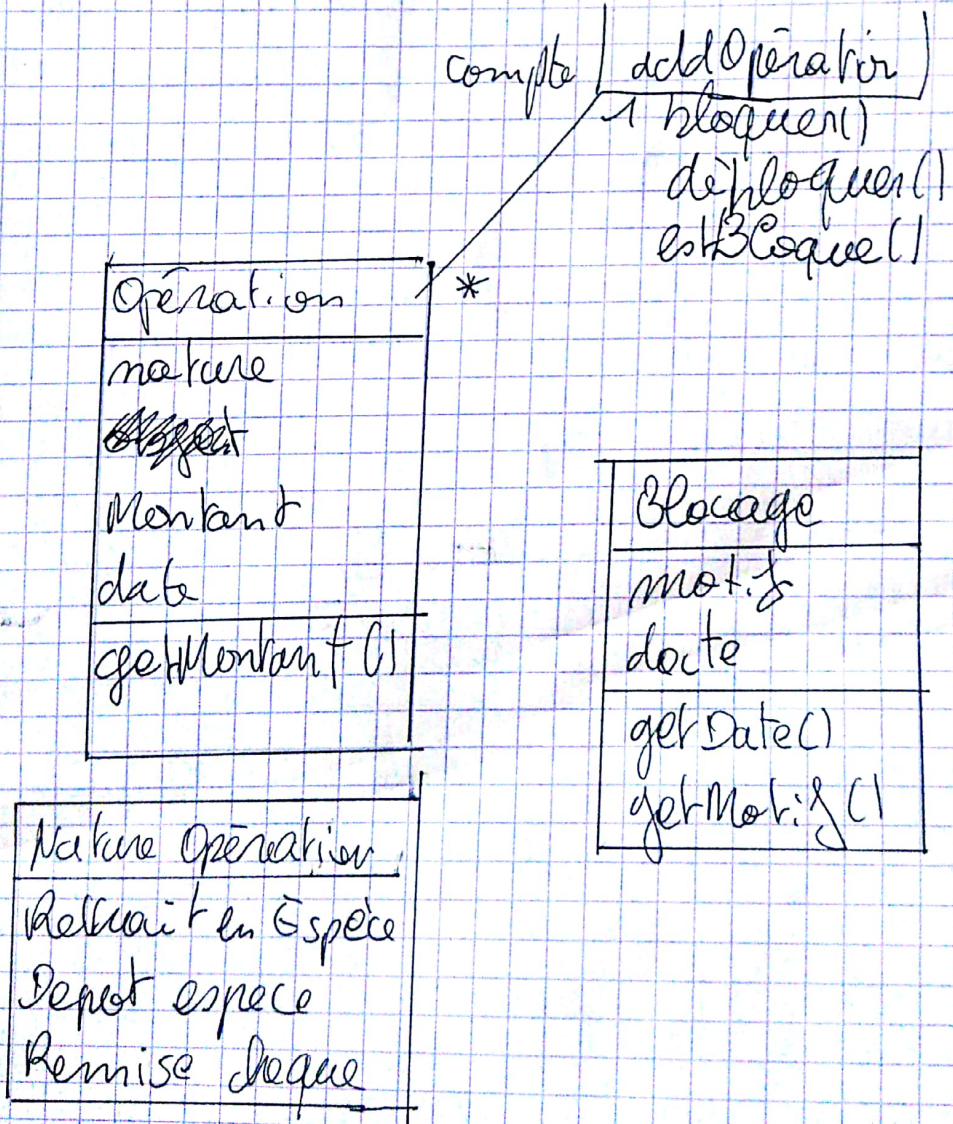 compte addOpération
1 bloquer()
débloquer()
estBloque()
Opération
*
nature
Montant
date
getMontant()
Blocage
motif
date
getDate()
getMotif()
Nature Opération
Retrait en Espèce
Depot espece
Remise cheque